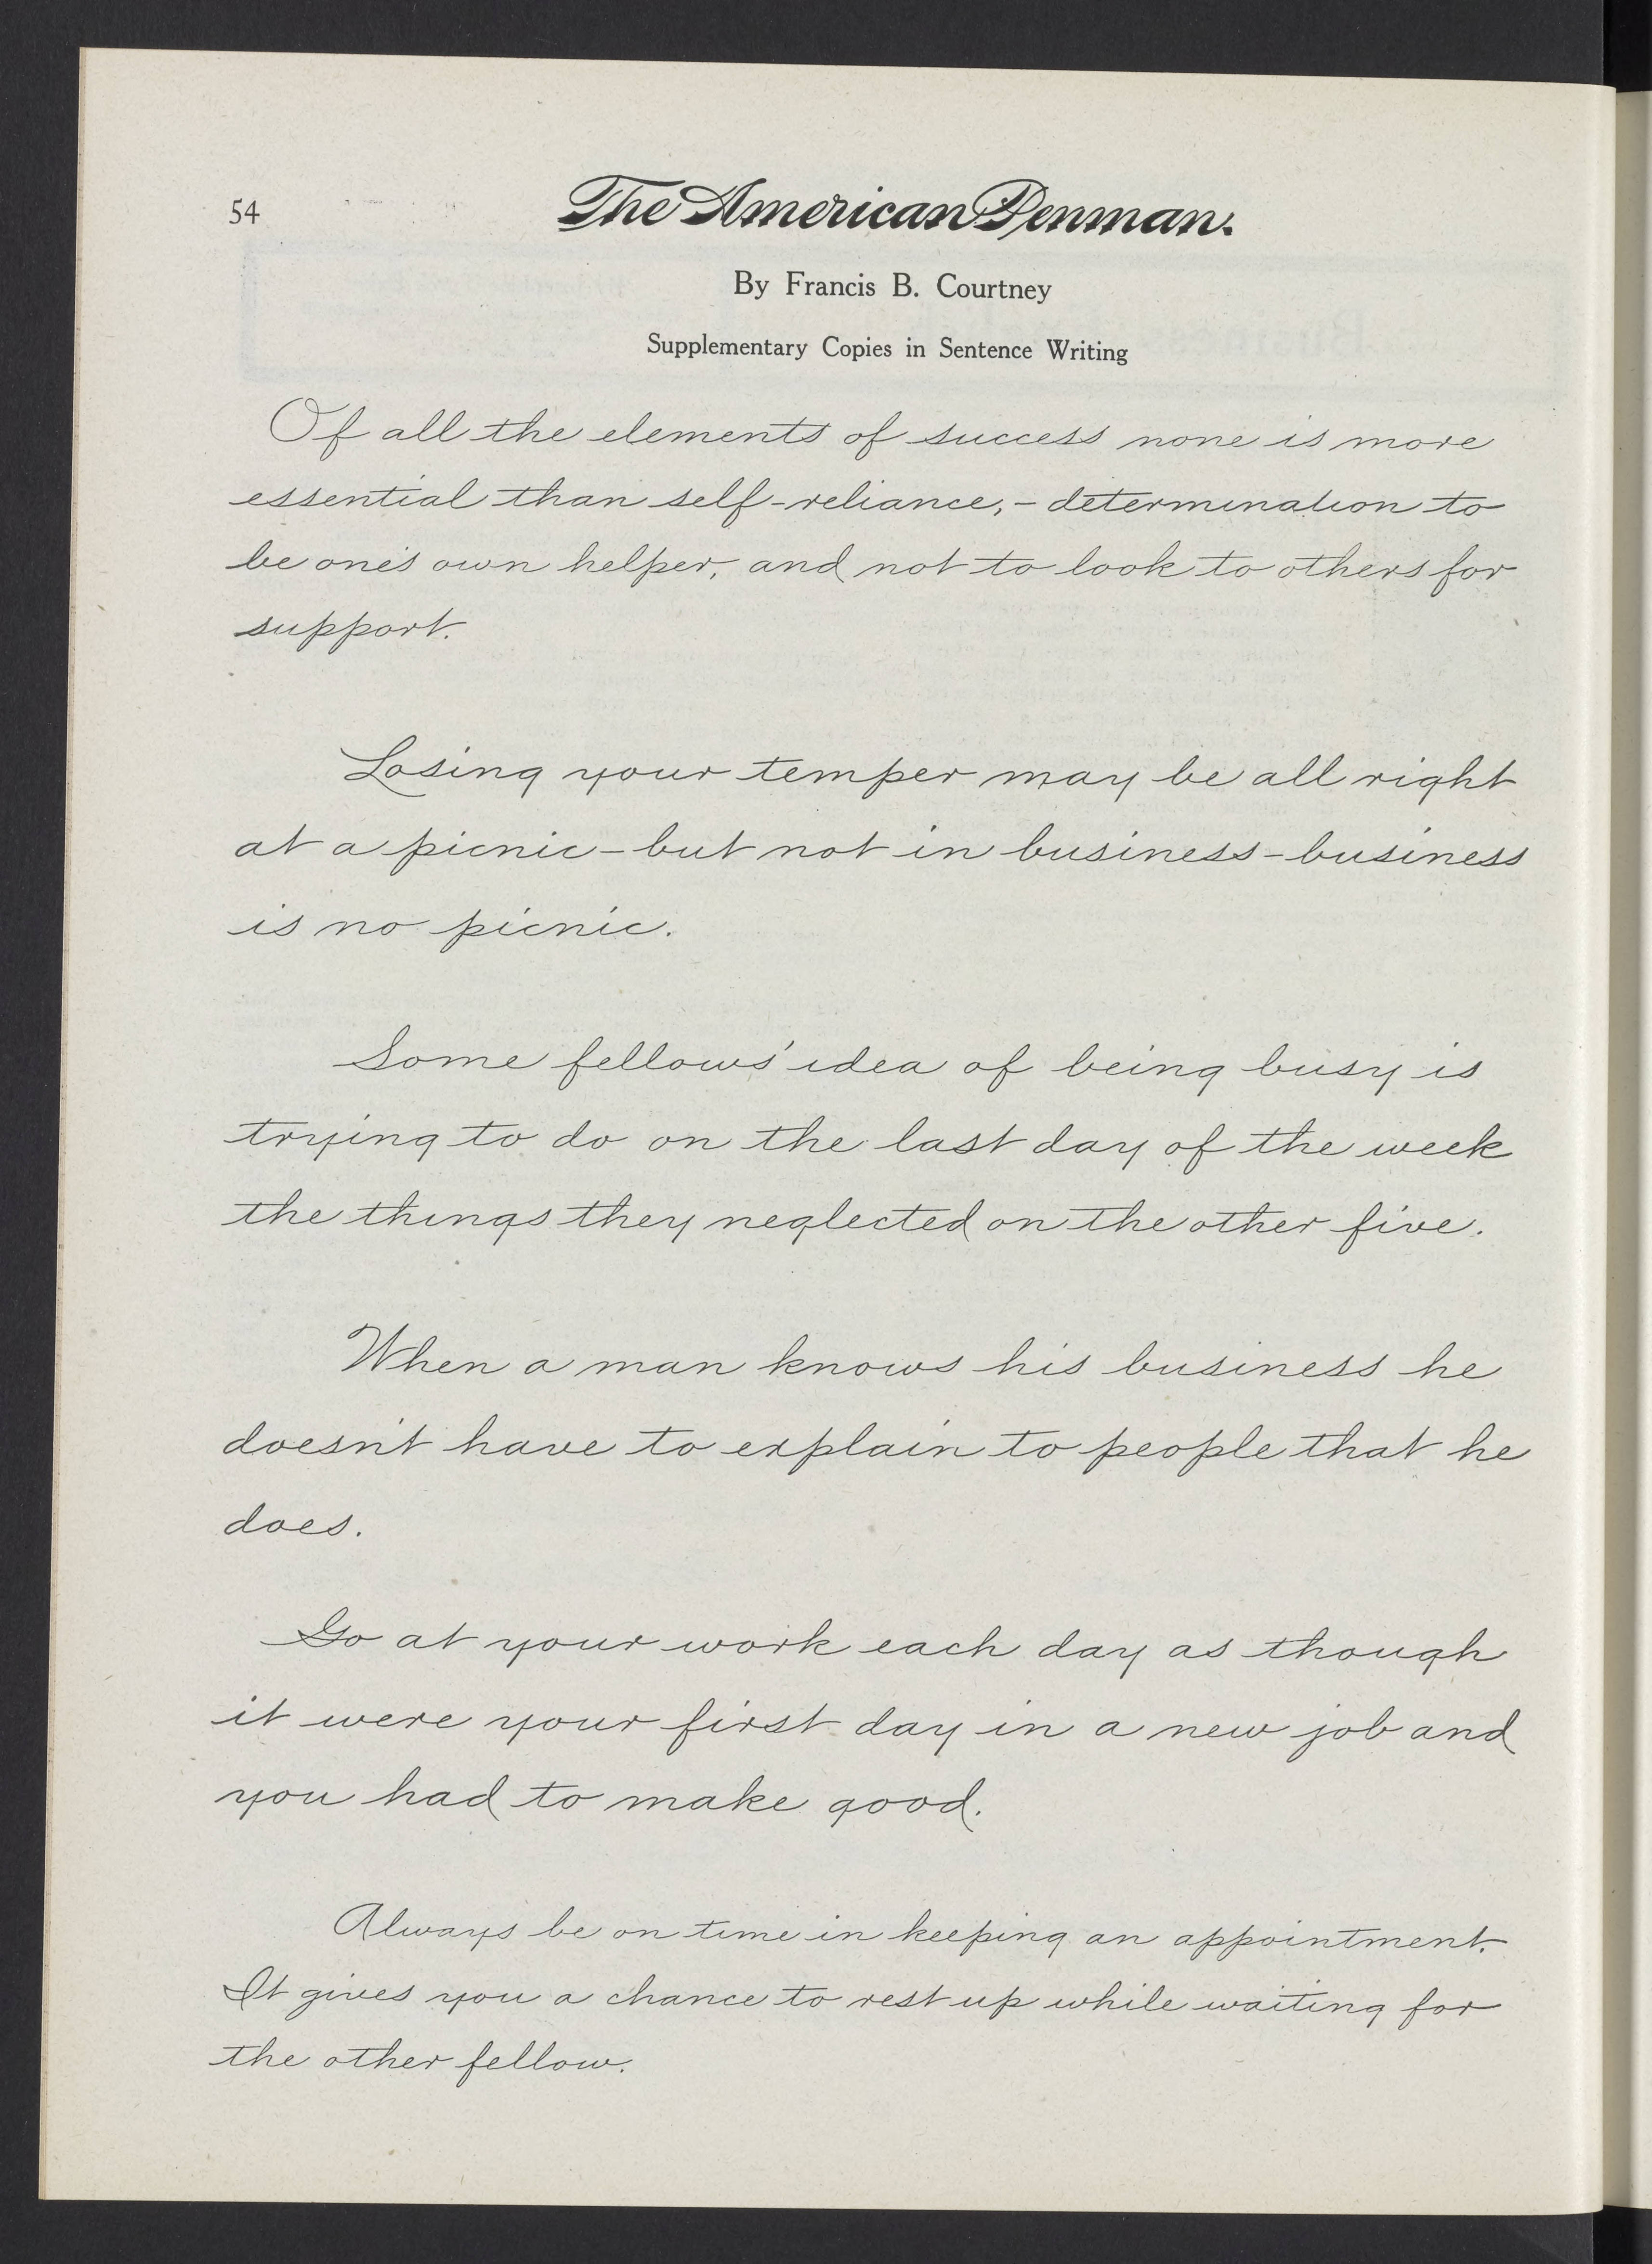 54
The American Penman.
By Francis B. Courtney
Supplementary Copies in Sentence Writing
Of all the elements of success none is more
essential than self-reliance,- determination to
be one's own helper, and not to look to others for
support.
Losing your temper may be all right
at a picnic - but not in business - business
is no picnic.
Some fellows' idea of being busy is
trying to do on the last day of the week
the things they neglected on the other five.
When a man knows his business he
doesn't have to explain to people that he
does.
Go at your work each day as though
it were your first day in a new job and
you had to make good.
Always be on time in keeping an appointment.
It gives you a chance to rest up while waiting for
the other fellow.